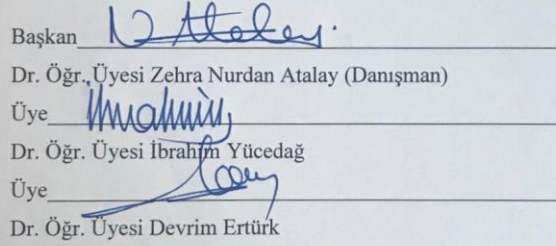 Başkan N Atalay.
Dr. Öğr. Üyesi Zehra Nurdan Atalay (Danışman)
Üye
Dr. Öğr. Üyesi İbrahim Yücedağ
Üye
Dr. Öğr. Üyesi Devrim Ertürk